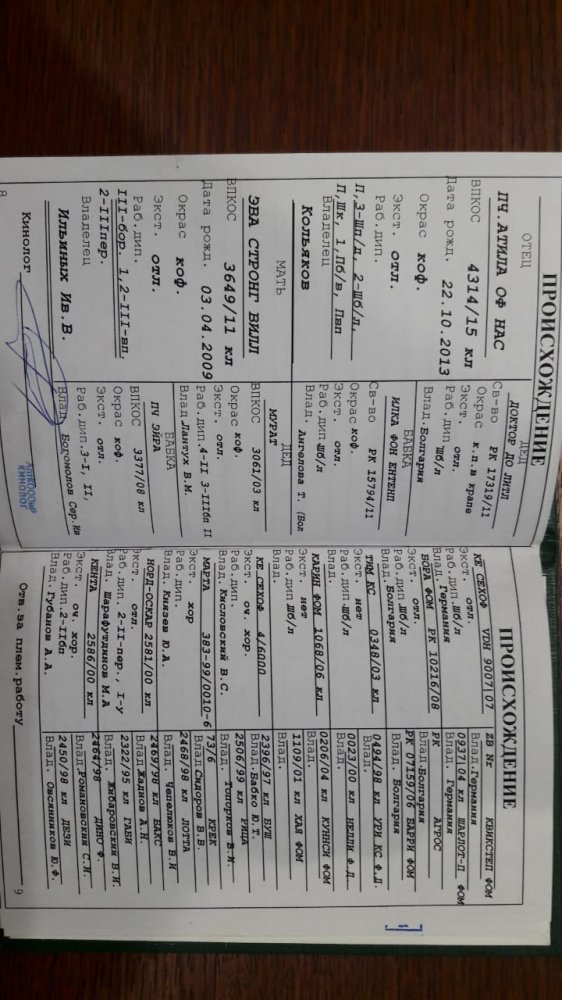 ПРОИСХОЖДЕНИЕ
ОТЕЦ
ПЧ.АТИЛА ОФ НАС
ВПКОС 4314/15 кл
Дата рожд. 22.10.2013
Окрас коф.
Экст. отл.
Раб.дип.
П,3-Шп/д, 2-Шб/л,
П,Шк, 1,Пб/в, Пвп
Владелец
Кольяков
МАТЬ
ЭВА СТРОНГ ВИЛЛ
ВПКОС 3649/11 кл
Дата рожд. 03.04.2009
Окрас коф.
Экст. отл.
Раб.дип.
III-бор. 1,2-III-вп.
2-IIпер.
Владелец
Ильиных Ив.В.
Кинолог
8
ДЕД
ДОКТОР ДО ЛИТЛ
Св-во РК 17319/11
Окрас к.п.в крапе
Экст. отл.
Раб.дип.Шб/л
Влад.Болгария
БАБКА
ИЛКА ФОН ЕНТЕНП
Св-во РК 15794/11
Окрас коф.
Экст. отл.
Раб.дип.Шб/л
Влад. Ангелова Т. (Бол
ДЕД
МУРАТ
ВПКОС 3061/03 кл
Окрас коф.
Экст. отл.
Раб.дип.4-II 3-IIIбп II
Влад.Лантух В.М.
БАБКА
ПЧ ЭЙРА
ВПКОС 3377/08 кл
Окрас коф.
Экст. отл.
Раб.дип.3-I, II,
Влад. Богомолов Сер.Ив
КИНОЛОГ
ПРОИСХОЖДЕНИЕ
КЕ СЕХОФ VDH 9007|07
Экст. отл.
Раб.дип.Шб/л
Влад. Германия
БОРА ФОМ РК 10216/08
Экст. отл.
Раб.дип.Шб/л
Влад.Болгария
ТИМ КС 0348/03 кл
Экст. нет
Раб.дип.Шб/л
Влад.
КАРИН ФОМ 1068/06 кл
Экст. нет
Раб.дип.Шб/л
Влад.
КЕ СЕХОФ 4/6000
Экст. оч. хор.
Раб.дип.
Влад. Кисловский В.С.
МАРТА 383-99/0010-6
Экст. хор
Раб.дип.
Влад. Князев Ю.А.
НОРД-ОСКАР 2581/00 кл
Экст. отл.
Раб.дип. 2-II-пер., I-у
Влад. Шарафутдинов М.А
КЕНТА 2586/00 кл
Экст. оч. хор.
Раб.дип.2-IIбп
Влад. Губанов А.А.
КВИКСТЕП ФОМ
ZB Nr.
Влад.Германия
0937|04 кл ШАРЛОТ-П ФОМ
Влад. Германия
РК АГРОС
Влад.Болгария
РК 07159/06 БАРРИ ФОМ
Влад. Болгария
0494/98 кл УРИ КС Ф.Д.
Влад.
0023/00 кл НЕЛЛИ Ф.Д.
Влад.
0206/04 кл КУННСИ ФОМ
Влад.
1109/01 кл ХАЯ ФОМ
Влад.
2396/97 кл БУШ
Влад.Бабко Ю.Т.
2506/99 кл РИЦА
Влад. Топорков В.И.
73/76 КРЕК
Влад.Сидоров В.В.
2468/98 кл ЛОТТА
Влад. Чепелюков В.И
2460/98 кл БАКС
Влад.Жаднов А.Н.
2322/95 кл ГАБИ
Влад. Жибаровский В.И.
2464/98 ДИНО Ф.
Влад.Романовский С.И.
2450/98 кл ДЕЗИ
Влад. Овсянников Ю.Ф.
Отв.за плем.работу
9